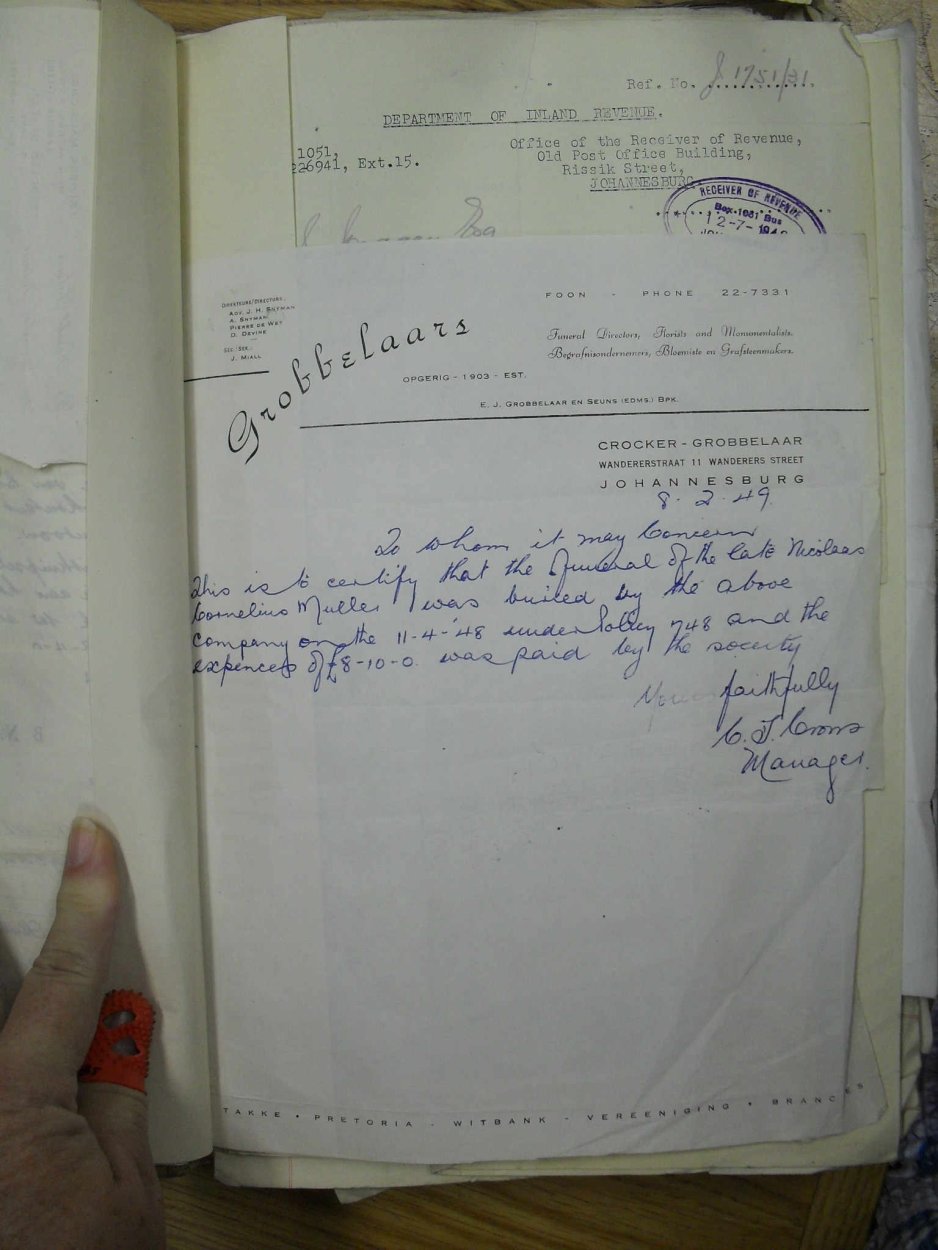 Ref. No. J 1751/31
DEPARTMENT OF INLAND REVENUE.
1051,
226941, Ext.15.
Office of the Receiver of Revenue,
Old Post Office Building,
Rissik Street,
JOHANNESBURG
RECEIVER OF REVENUE
Box 1051 Bus
12-7-194
Esq
DIREKTEURE/DIRECTORS.
ADV. J. H. SNYMAN
A. SNYMAN
PIERRE DE WET
D. DEVINE
SEC./SEK.:
J. MIALL
Grobbelaars
FOON - PHONE 22-7331
Funeral Directors, Florists and Monumentalists.
Begrafnisondernemers, Bloemiste en Grafsteenmakers.
OPGERIG - 1903 - EST.
E. J. GROBBELAAR EN SEUNS (EDMS.) BPK.
CROCKER - GROBBELAAR
WANDERERSTRAAT 11 WANDERERS STREET
JOHANNESBURG
8. 2. 49.
To whom it may Concern
This is to certify that the funeral of the late Nicolaas
Cornelius Muller was buried by the above
company on the 11-4-'48 under Policy 748 and the
expences of £8-10-0. was paid by the society
Yours faithfully
C. J. Crous
Manager.
TAKKE • PRETORIA - WITBANK - VEREENIGING • BRANCES